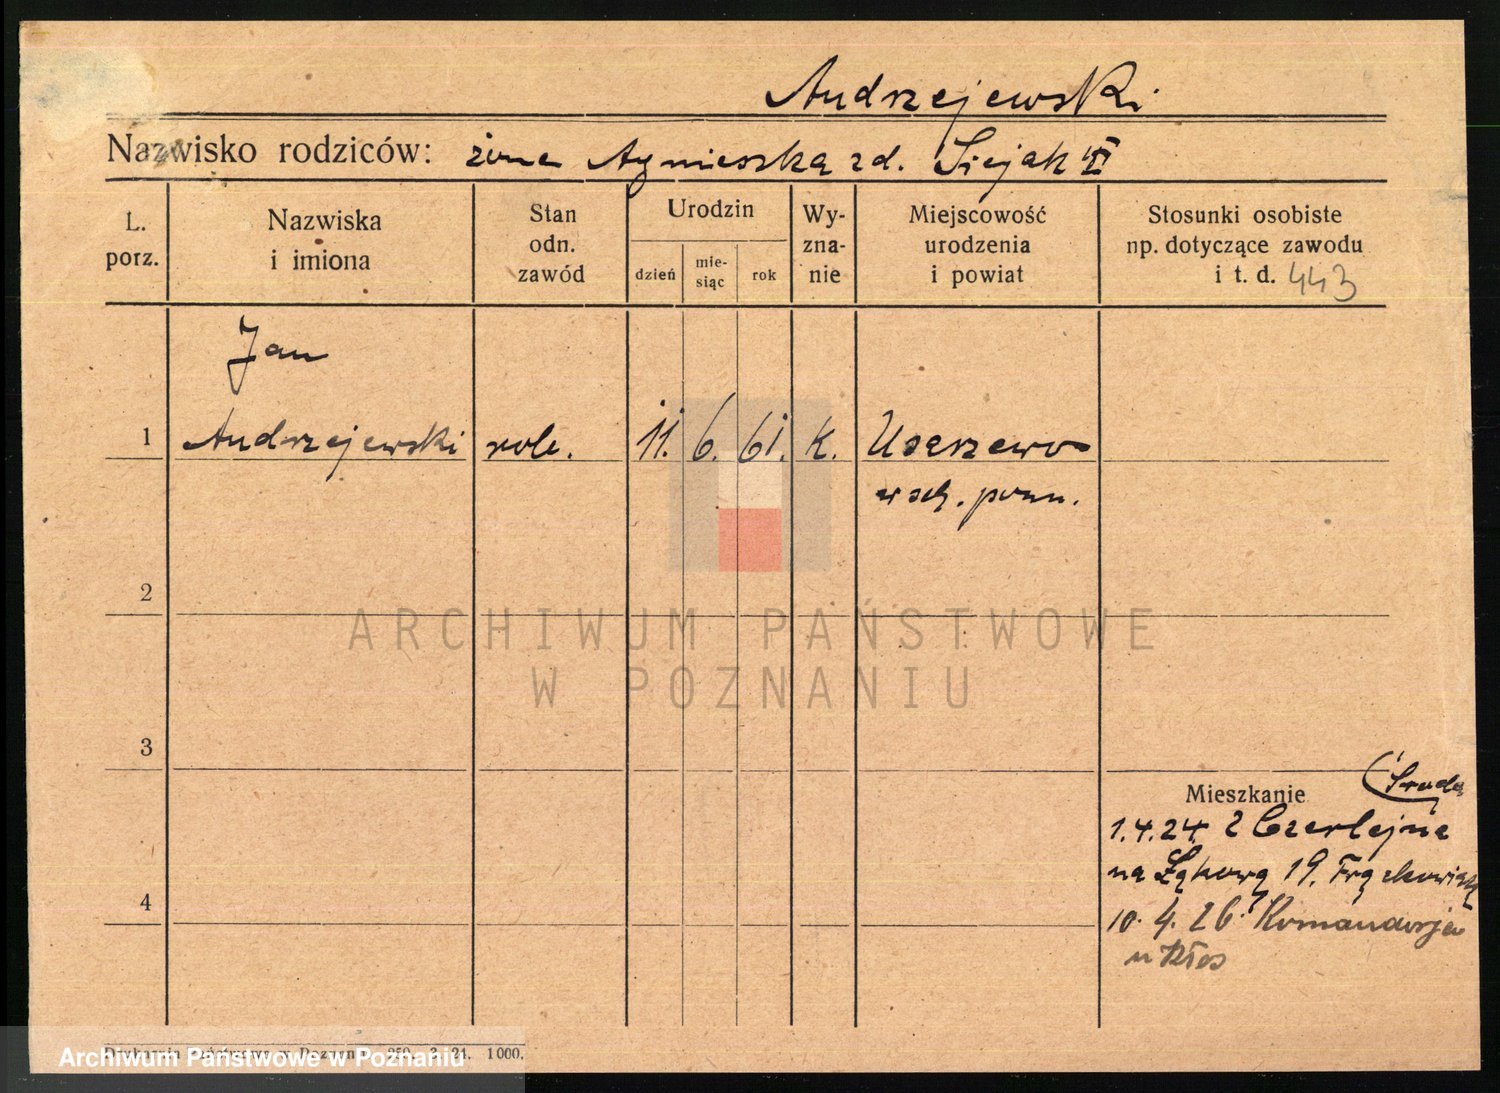 Andrzejewski
Nazwisko rodziców: żona Agnieszka zd. Siejak VI
L. porz.
Nazwiska i imiona
Stan odn. zawód
Urodzin
dzień
mie-siąc
rok
Wy-zna-nie
Miejscowość urodzenia i powiat
Stosunki osobiste np. dotyczące zawodu i t. d. 443
Jan
1 Andrzejewski rob. 11. 6. 61. k.
wsch. pozn.
2
3
4
Mieszkanie (Środa
1.4.24. z Czerlejna
na Łąkową 19. Frąckowiak
10. 4. 26. Komandorja
u Kłos
ARCHIWUM PAŃSTWOWE
W POZNANIU
Archiwum Państwowe w Poznaniu
1000.